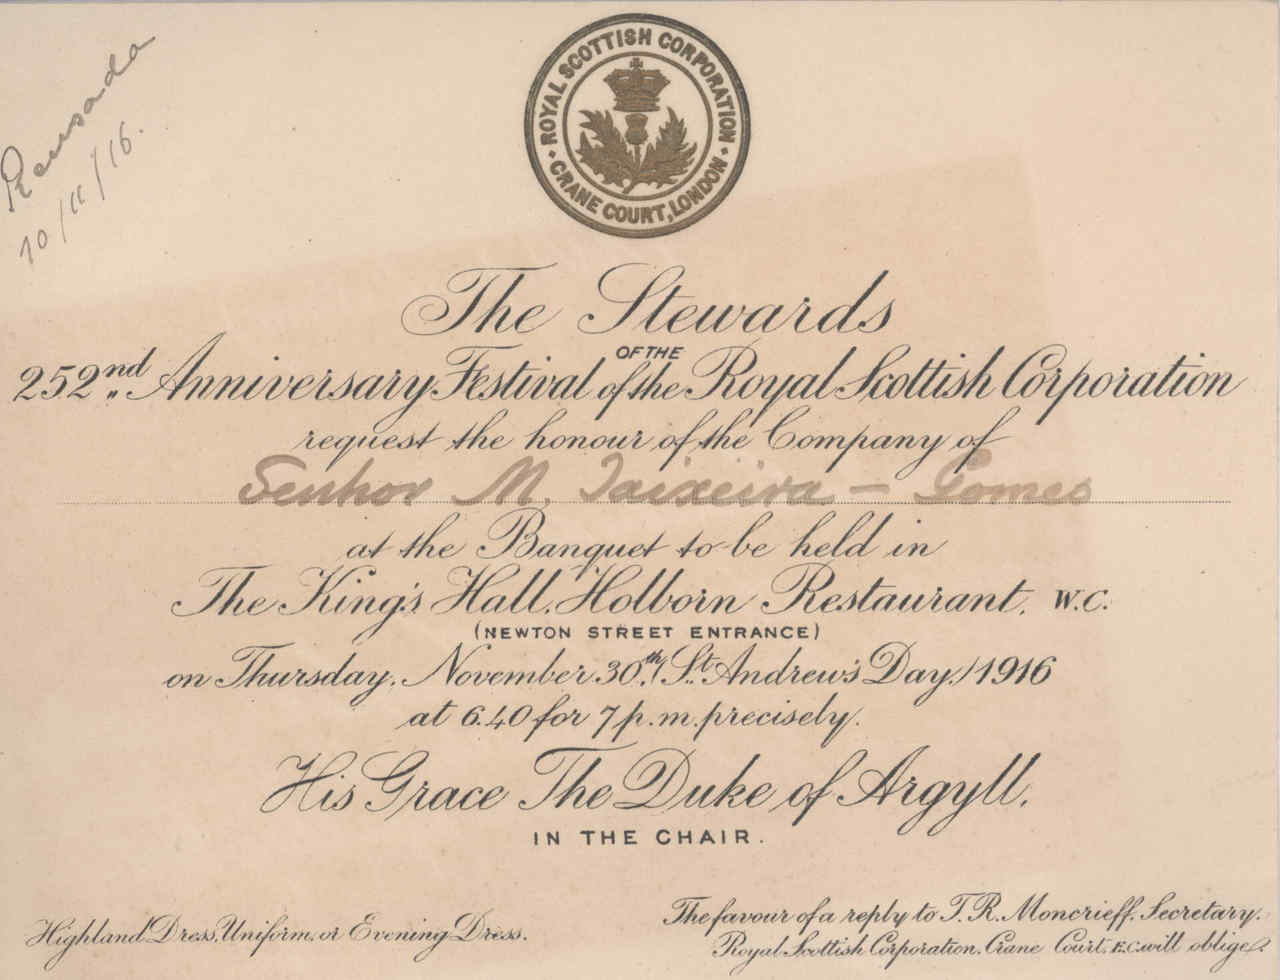 Recusada
10/11/16.
ROYAL SCOTTISH CORPORATION
CRANE COURT, LONDON
The Stewards
OF THE
252nd Anniversary Festival of the Royal Scottish Corporation
request the honour of the Company of
Senhor M. Taixeira - Gomes
at the Banquet to be held in
The King's Hall, Holborn Restaurant, W.C.
(NEWTON STREET ENTRANCE)
on Thursday, November 30th, (St. Andrew's Day) 1916
at 6.40 for 7 p.m. precisely.
His Grace The Duke of Argyll,
IN THE CHAIR.
Highland Dress, Uniform, or Evening Dress.
The favour of a reply to T. R. Moncrieff, Secretary,
Royal Scottish Corporation, Crane Court, E.C. will oblige.